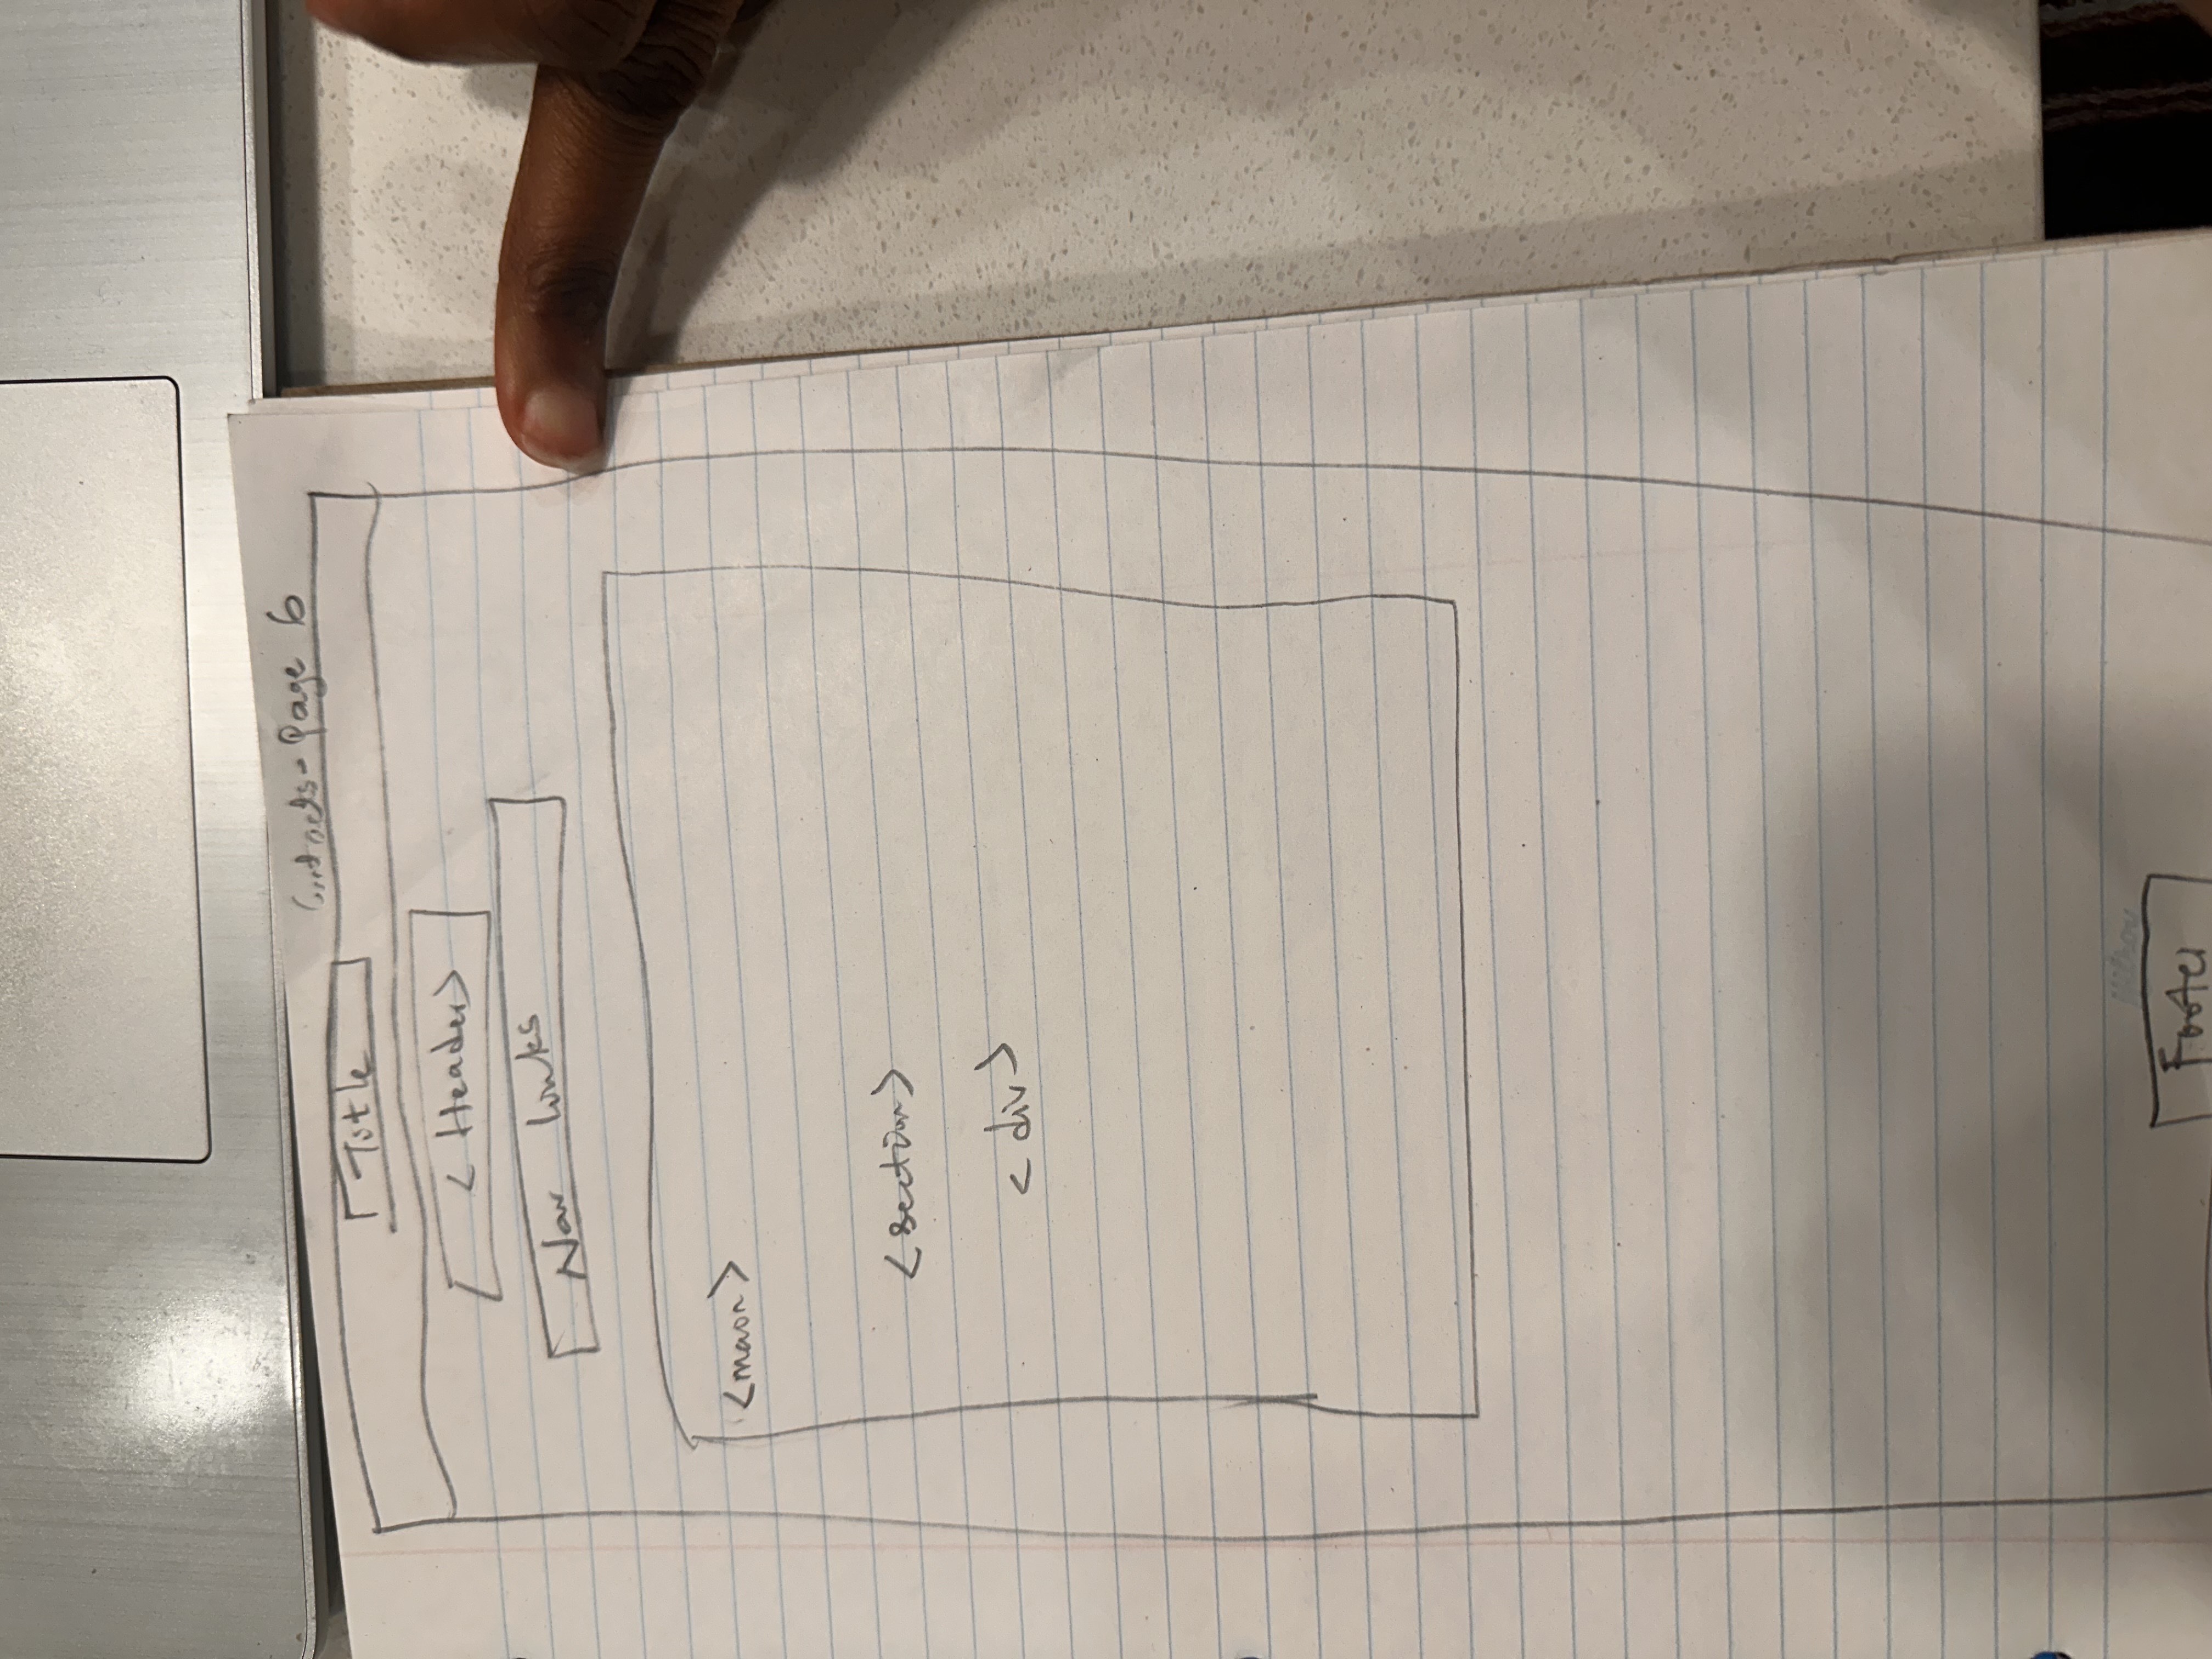 Contacts - Page 6
Title
< Header>
Nav links
<main>
<section>
< div>
Hilroy
Footer